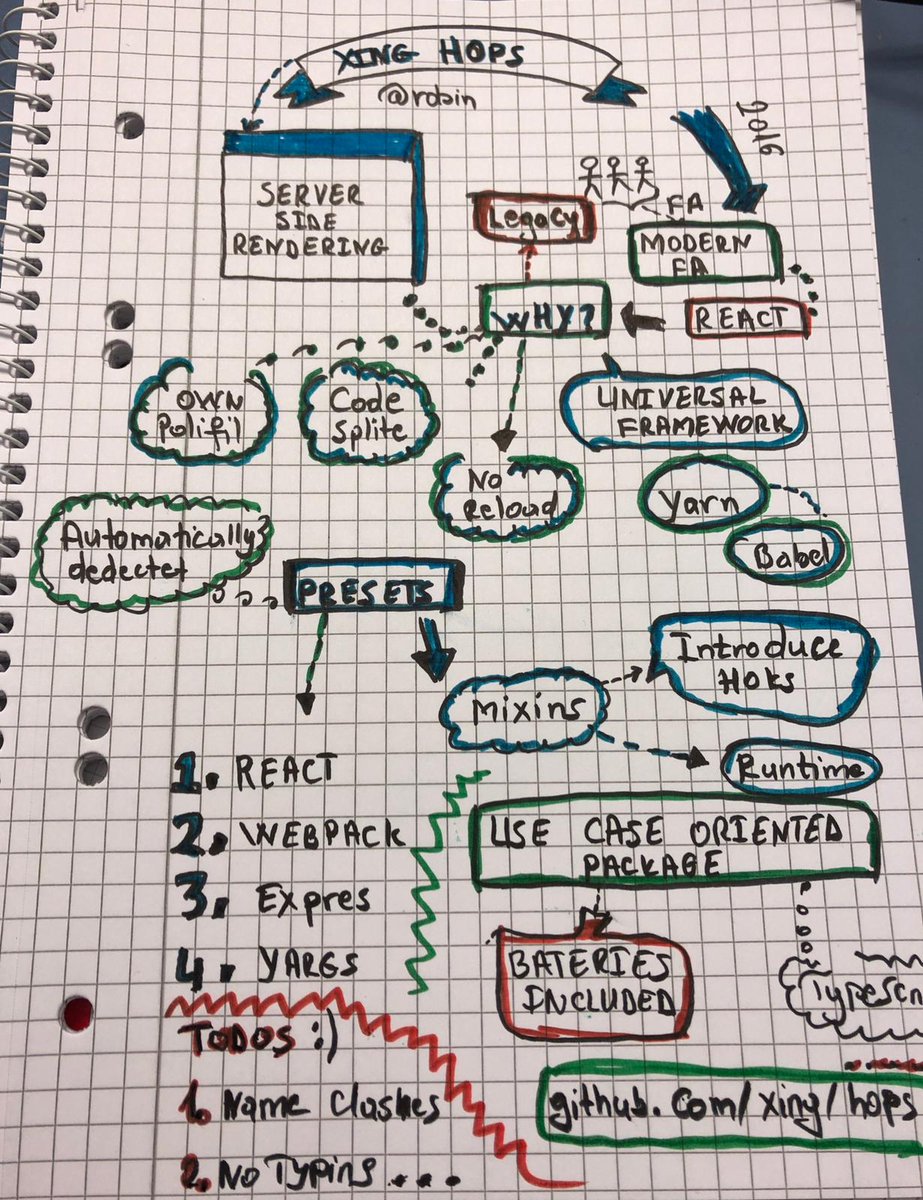 XING HOPS
@robin
2016
SERVER
SIDE
RENDERING
Legacy
FA
MODERN
FA
WHY?
REACT
OWN
Polifil
Code
Splite
UNIVERSAL
FRAMEWORK
No
Reload
Yarn
Babel
Automatically
dedectet
PRESETS
Introduce
HOKS
Mixins
Runtime
1. REACT
2. WEBPACK
3. Expres
4. YARGS
USE CASE ORIENTED
PACKAGE
BATERIES
INCLUDED
Typescr
TODOS :)
1. Name Clashes
2. No Typins ....
github.com/xing/hops